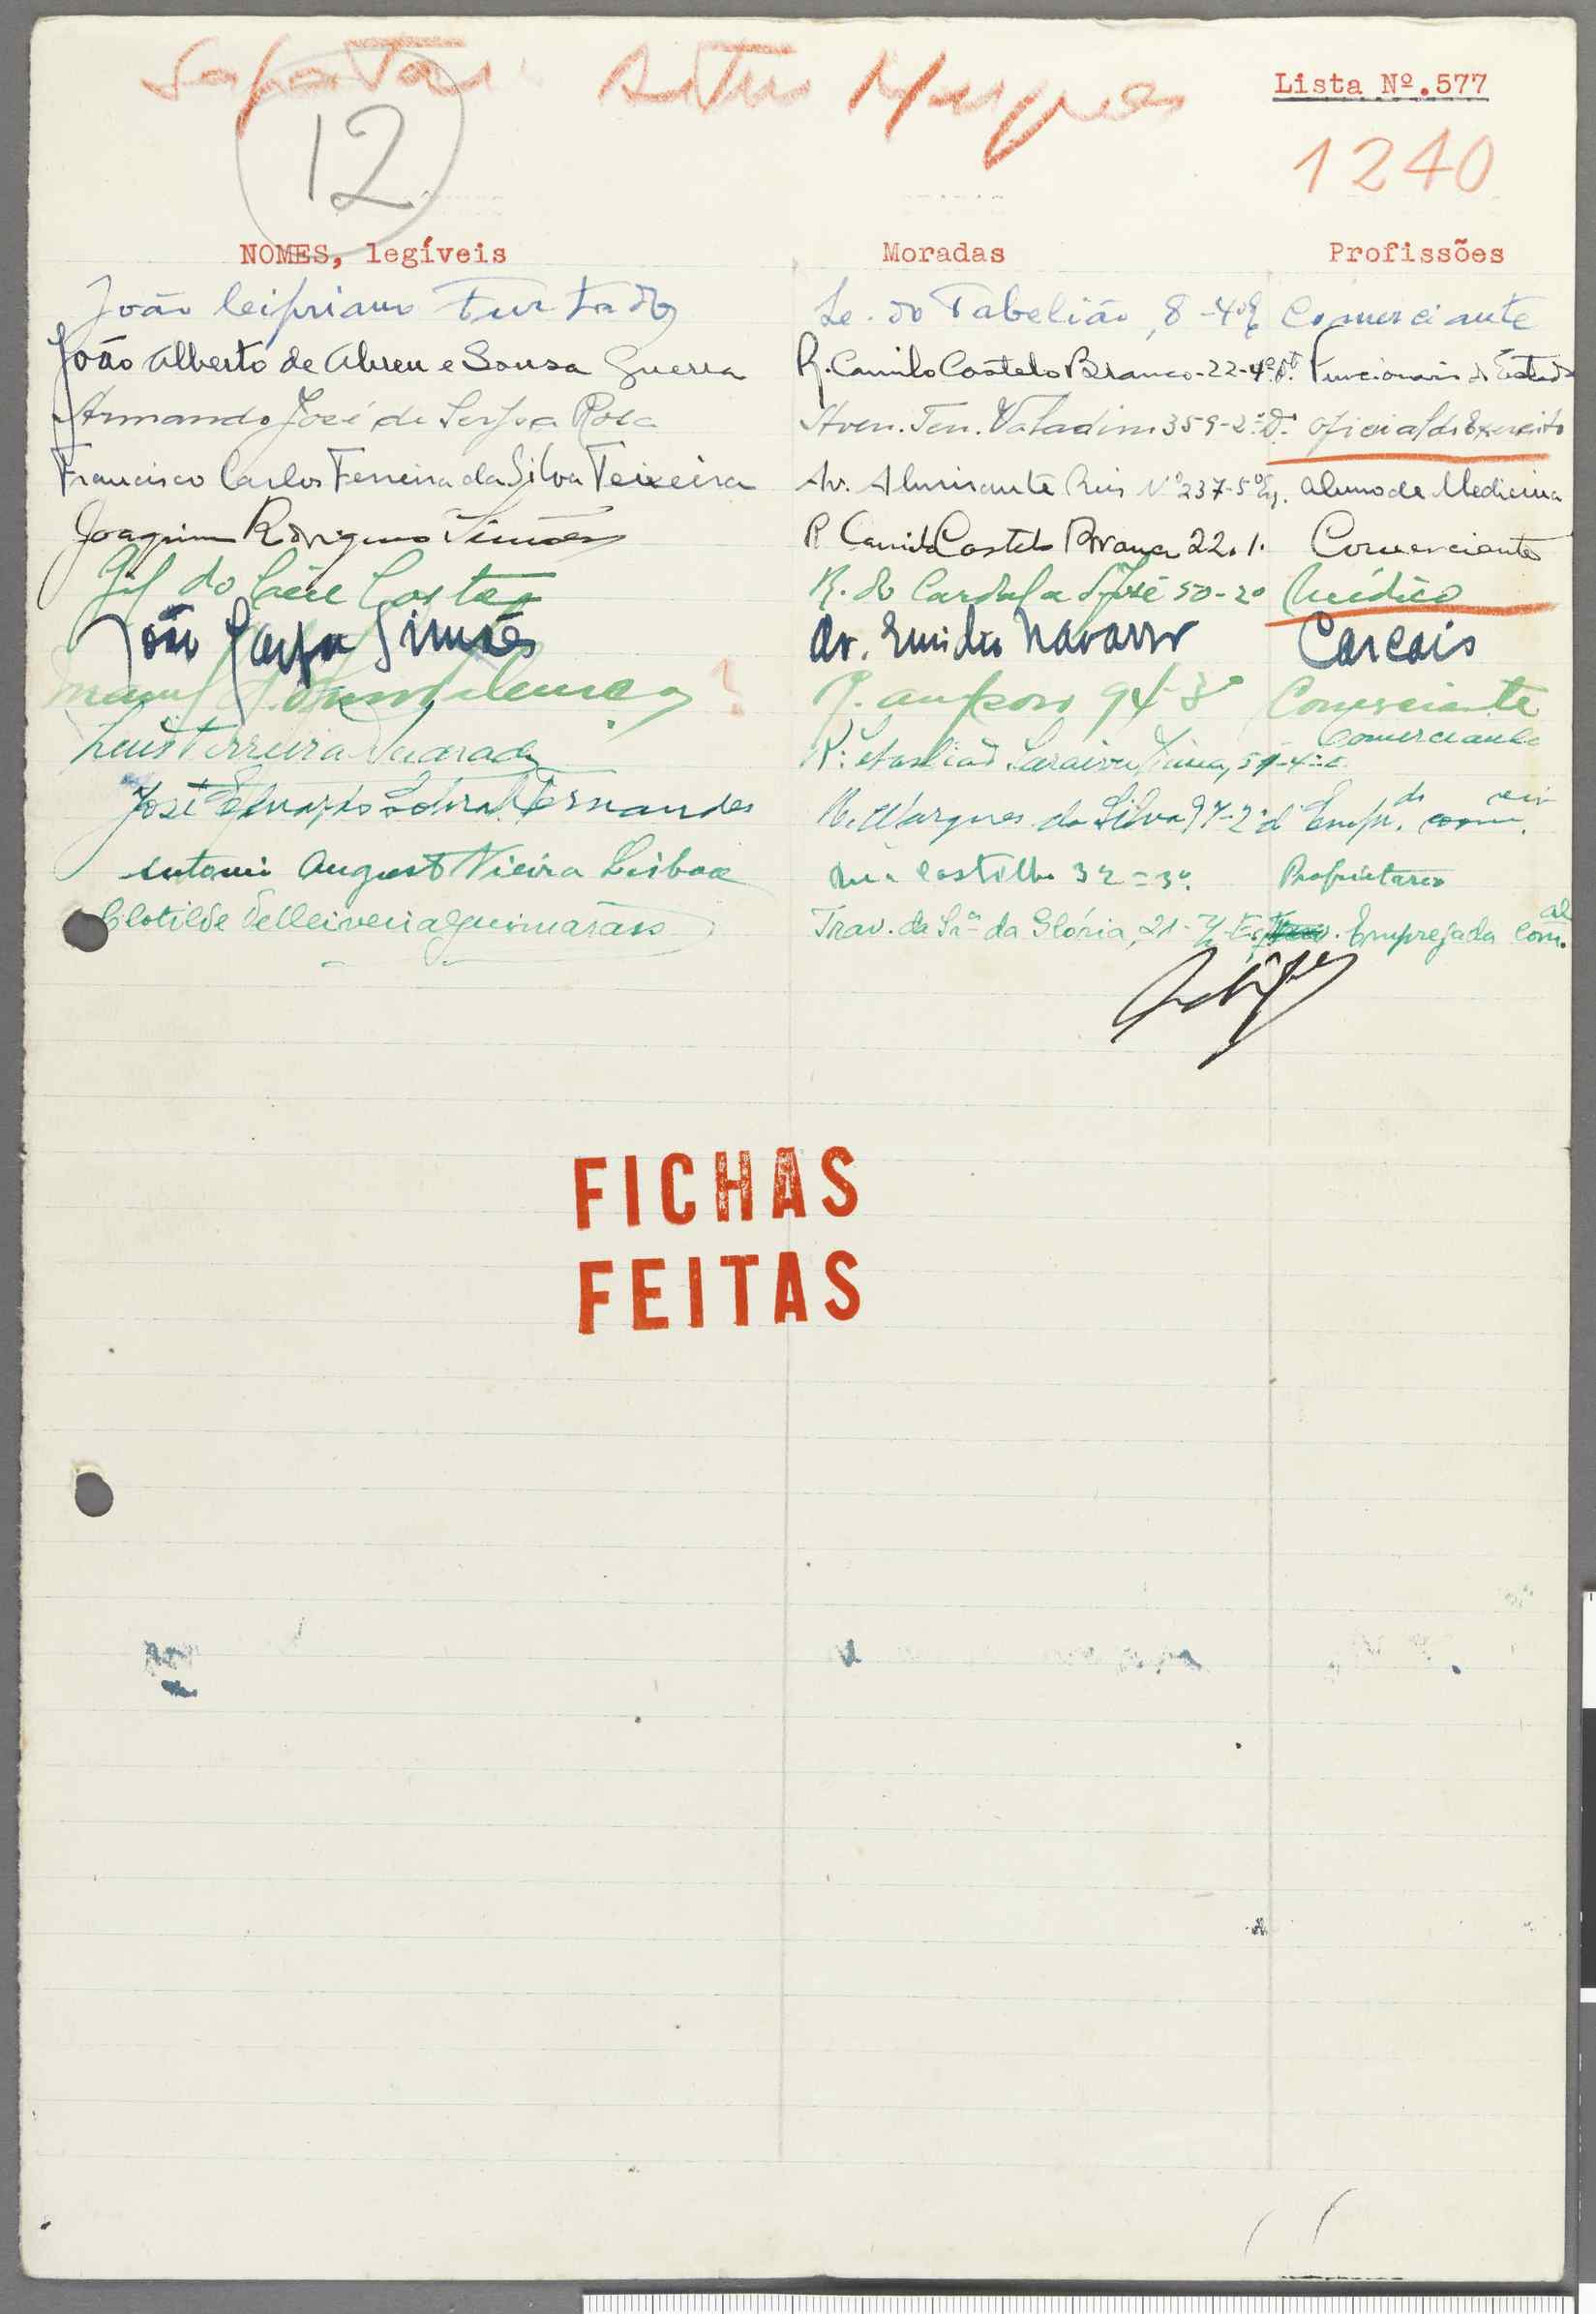 Artur Marques
Lista Nº.577
12
1240
NOMES, legíveis Moradas Profissões
João Cipriano Furtado Lc. do Tabelião, 8-4º E Comerciante
João Alberto de Abreu e Sousa Guerra R. Camilo Castelo Branco-22-4º.dt. Funcionario do Estado
Armando José de Serpa Rosa Aven. Ten. Valadim 359-2º.D. oficial do Exercito
Francisco Carlos Ferreira da Silva Teixeira Av. Almirante Reis Nº 237-5º Eq. aluno de Medicina
Joaquim Rodrigues Simões R Camilo Castelo Branco 22.1. Comerciante
Gil do Costa R. do Cardal a S. José 50-2º Médico
João Simões Av. Emidio Navarro Cascais
? 94-3º Comerciante
Luis Ferreira Andrade R: Saraiva Lima, Comerciante
José Eduardo Sobral Fernandes R. Marques da Silva 97-2º d Emp. de
Antonio Augusto Vieira Lisboa Rua Castilho 32=3º. Proprietario
Clotilde Guimarães Trav. da Sr.ª da Glória, 21- Empregada com.al
FICHAS
FEITAS